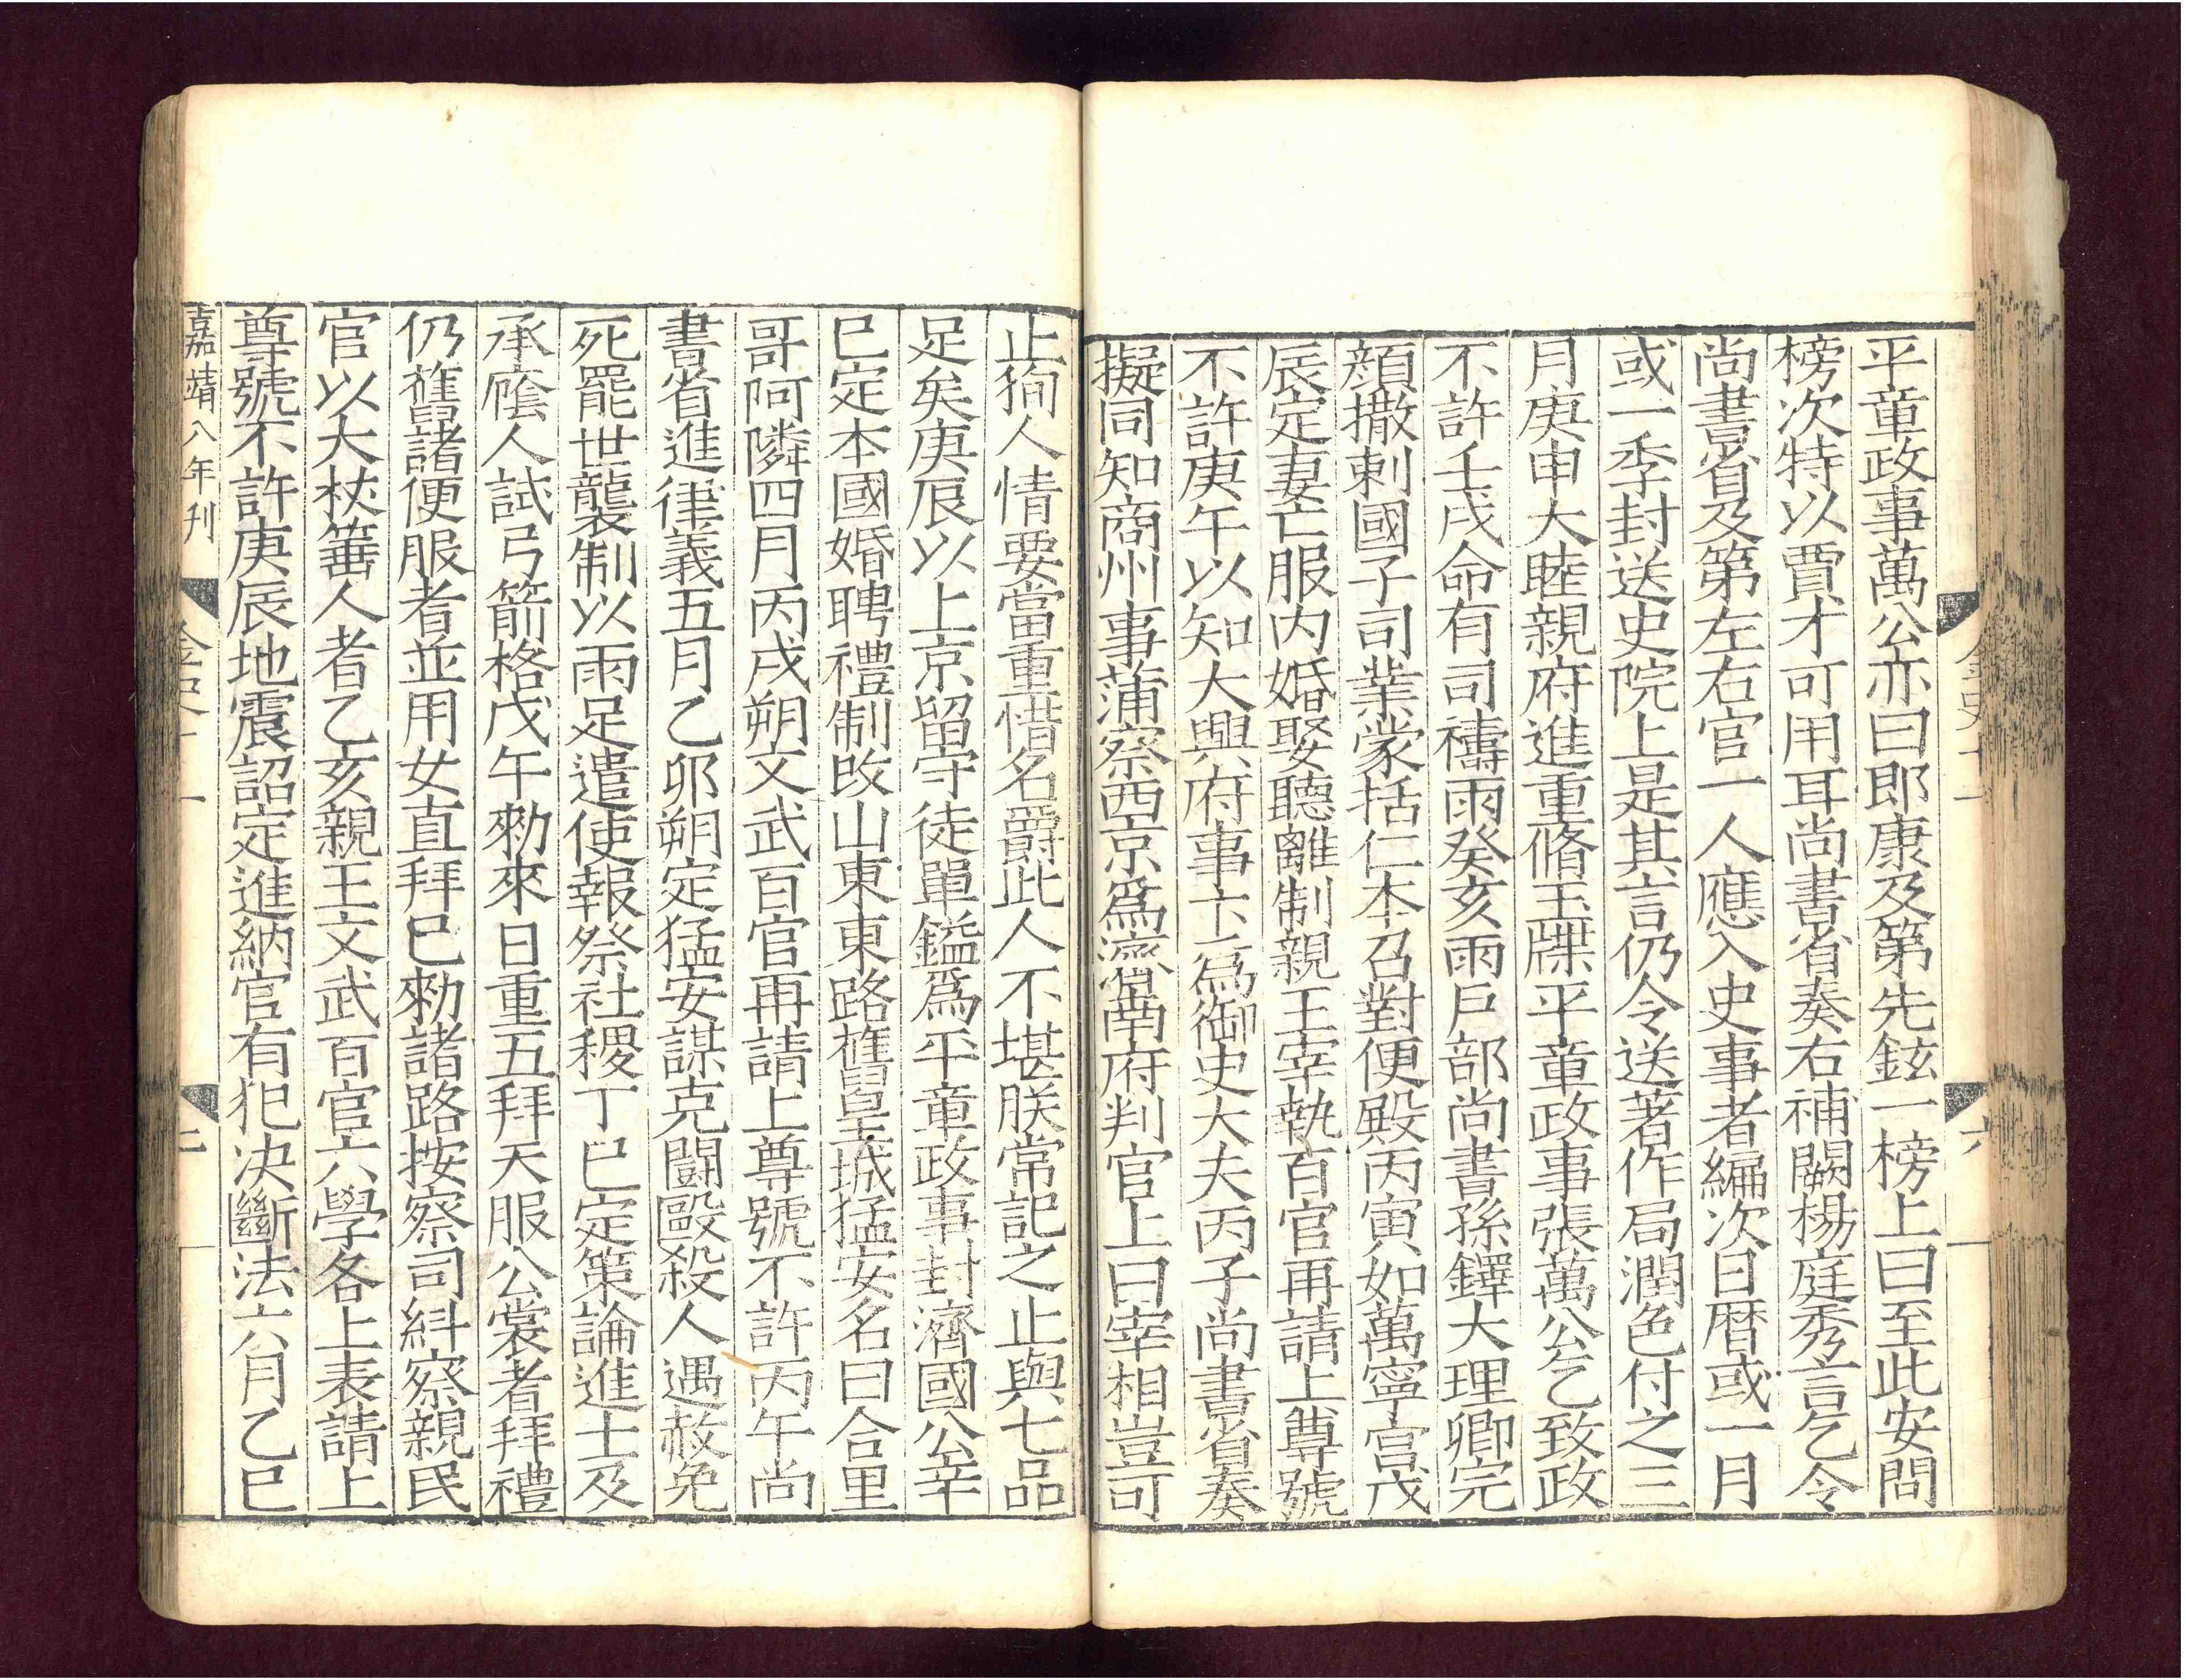 平章政事萬公亦曰即康及第先鉉一榜上曰至此安問
榜次特以賈才可用耳尚書省奏右補闕楊庭秀言乞令
尚書省及第左右官一人應入史事者編次日曆或一月
或一季封送史院上是其言仍令送著作局潤色付之三
月庚申大睦親府進重脩玉牒平章政事張萬公乞致政
不許壬戌命有司禱雨癸亥雨戶部尚書孫鐸大理卿完
顏撒剌國子司業蒙括仁本召對便殿丙寅如萬寧宮戊
辰定妻亡服內婚娶聽離制親王宰執百官再請上尊號
不許庚午以知大興府事卞爲御史大夫丙子尚書省奏
擬同知商州事蒲察西京爲濟南府判官上曰宰相豈可
止狥人情要當重惜名爵此人不堪朕常記之止與七品
足矣庚辰以上京留守徒單鎰爲平章政事封濟國公辛
巳定本國婚聘禮制改山東東路舊皇城猛安名曰合里
哥阿隣四月丙戌朔文武百官再請上尊號不許丙午尚
書省進律義五月乙卯朔定猛安謀克鬪毆殺人遇赦免
死罷世襲制以雨足遣使報祭社稷丁巳定策論進士及
承廕人試弓箭格戊午勑來日重五拜天服公裳者拜禮
仍舊諸便服者並用女直拜巳勑諸路按察司糾察親民
官以大杖箠人者乙亥親王文武百官六學各上表請上
尊號不許庚辰地震詔定進納官有犯決斷法六月乙巳
嘉靖八年刊
金史十一